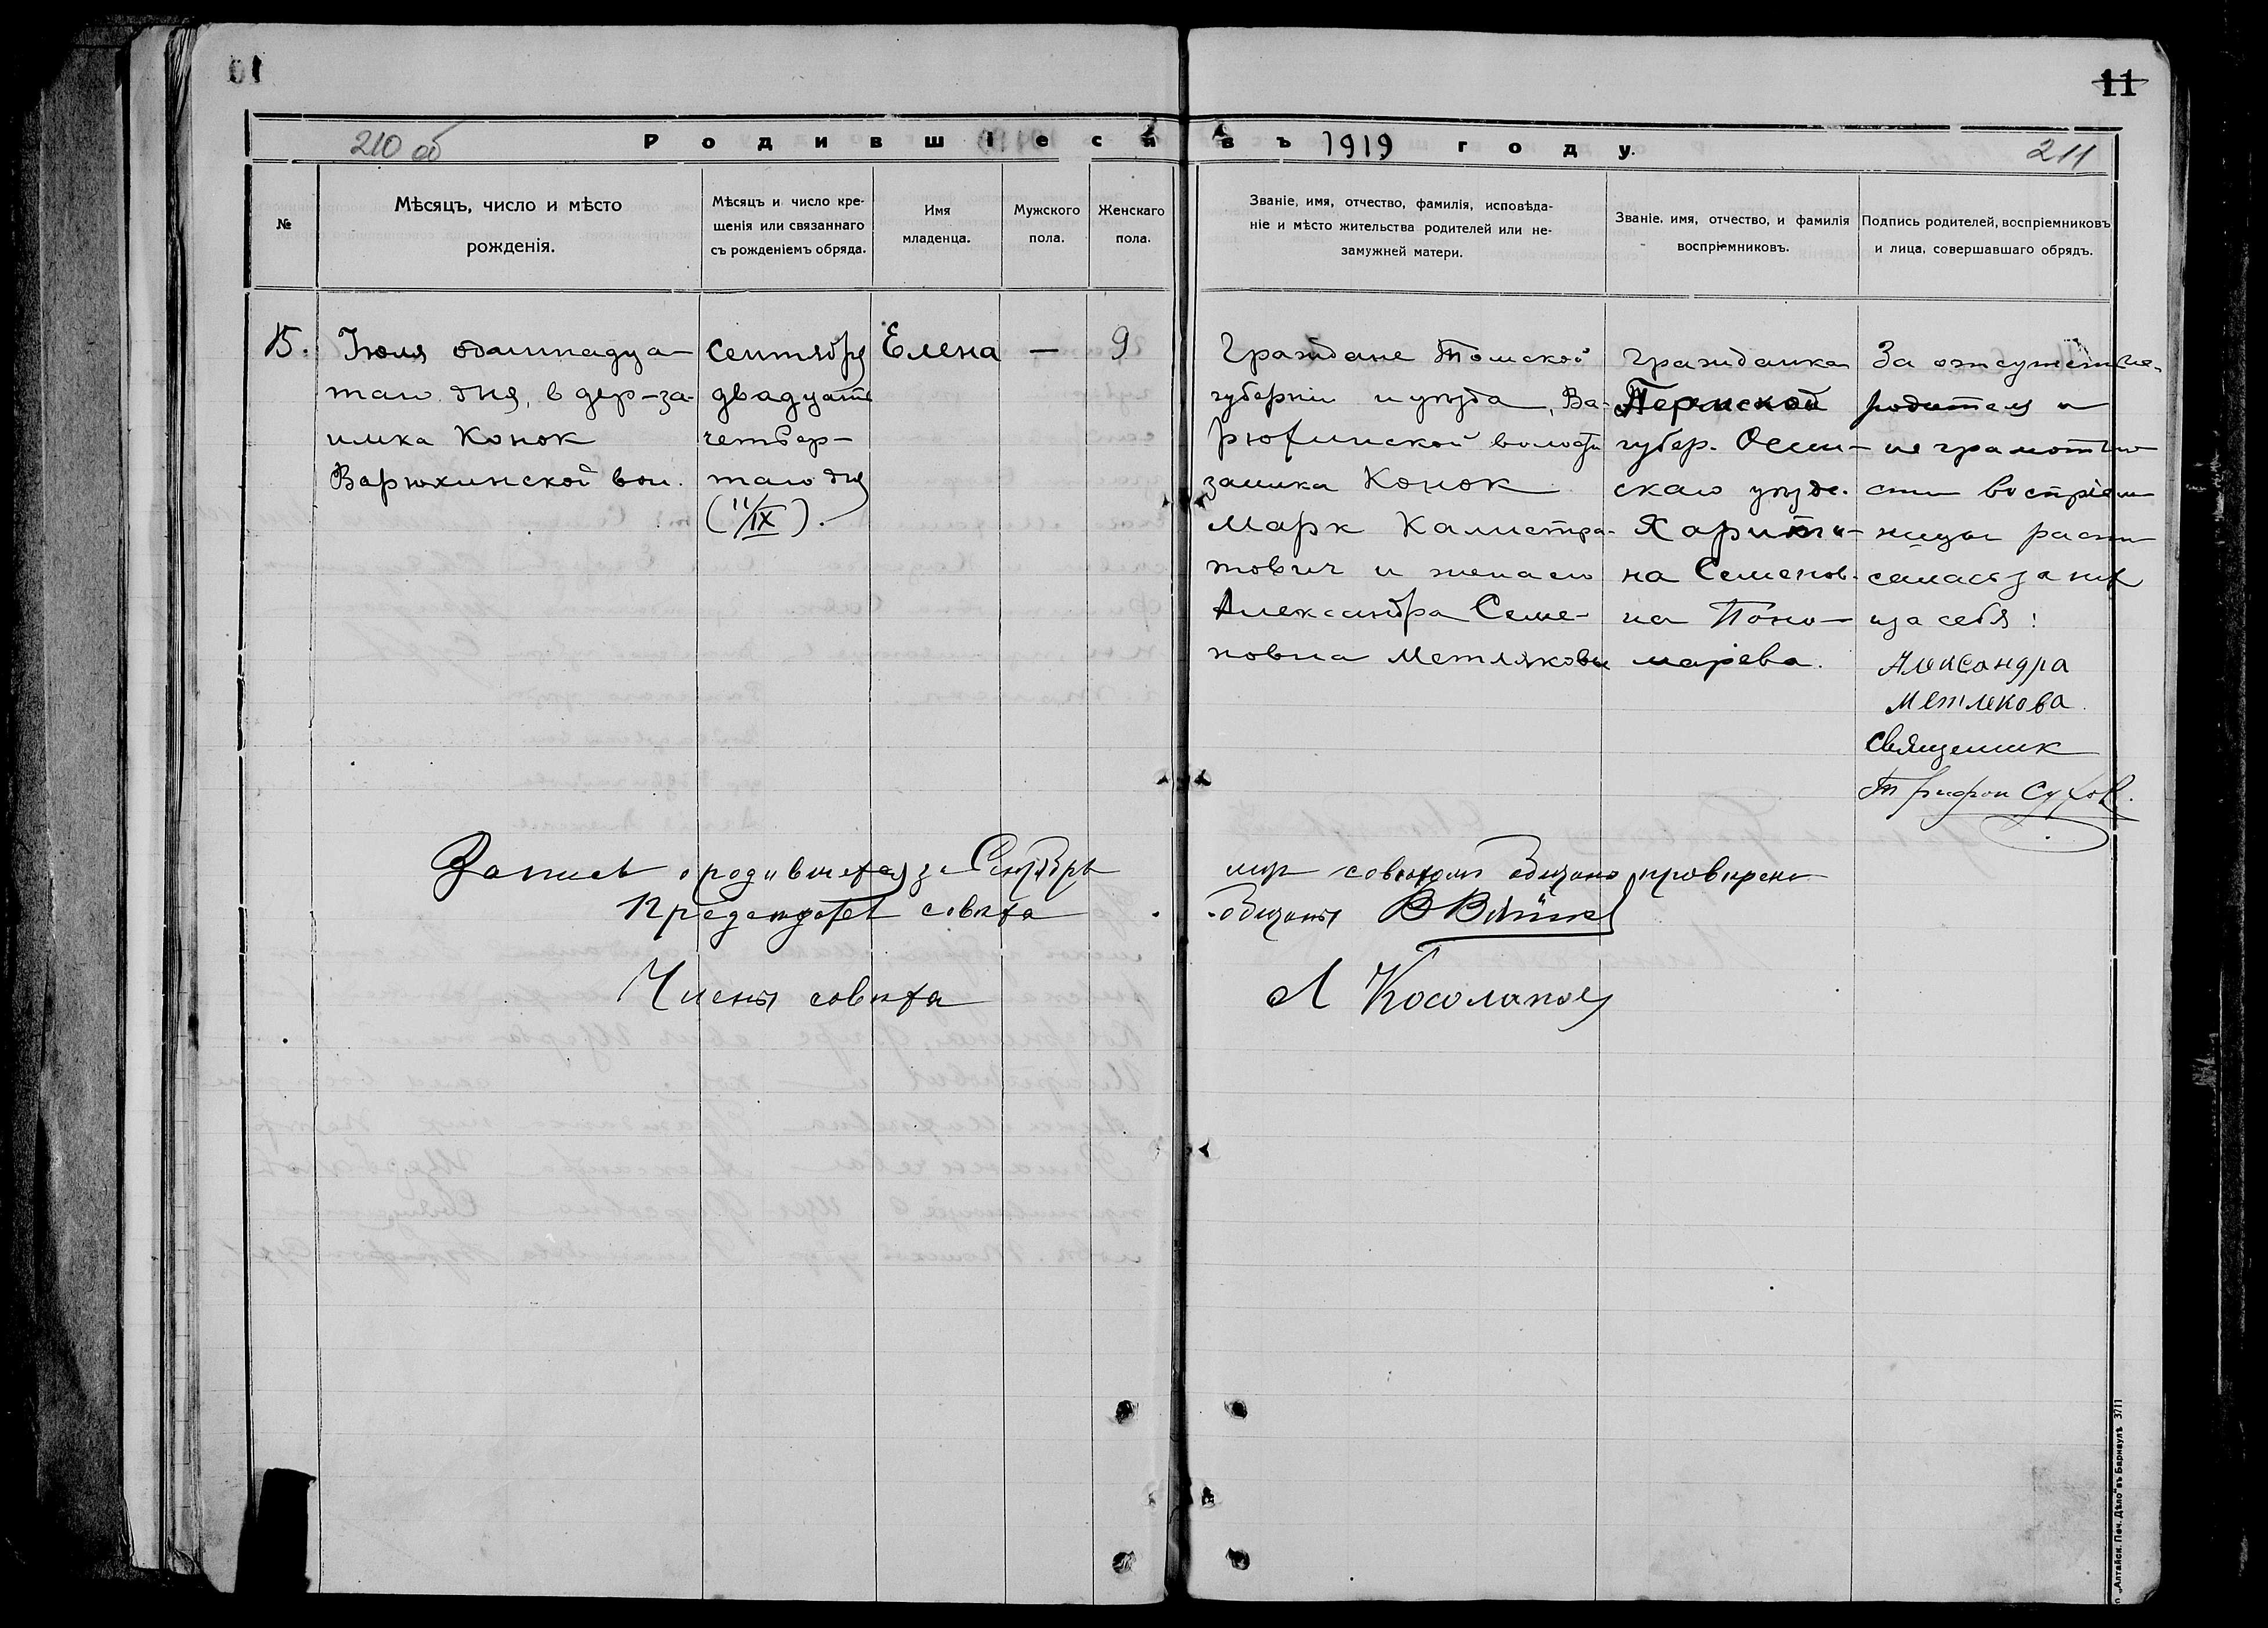 10
11
210 об
Родившіеся
въ 1919 году.
211
№
Мѣсяцъ, число и мѣсто
рожденія.
Мѣсяцъ и число кре-
щенія или связаннаго
съ рожденіемъ обряда.
Имя
младенца.
Мужского
пола.
Женскаго
пола.
Званіе, имя, отчество, фамилія, исповѣда-
ніе и мѣсто жительства родителей или не-
замужней матери.
Званіе, имя, отчество, и фамилія
воспріемниковъ.
Подпись родителей, воспріемниковъ
и лица, совершавшаго обрядъ.
15.
Іюля одиннадца-
таго дня, в дер-за-
имка Конок
Варюхинской вол.
Сентября
двадцать
четвер-
таго дня
(11/IX).
Елена
—
9
Граждане Томской
губерніи и уѣзда, Ва-
рюхинской волости
заимка Конок
Марк Калистра-
тович и жена его
Александра Семе-
новна Метляковы
Гражданка
Пермской
губер. Осин-
скаго уѣзда.
Харити-
на Семенов-
на Поно-
марева.
За отсутствіе-
родителя и
не грамотно-
сти воспріем-
ницы распи-
салась за них
и за себя:
Александра
Метлекова
Священник
Трифон Сухов.
Запись о родившихся за Сентябрь
мц советом общины проверена
Председатель совета
общины В
Члены совета
Л Косолапов
„Алтайск. Печ. Дѣло" въ Барнаулѣ 3711